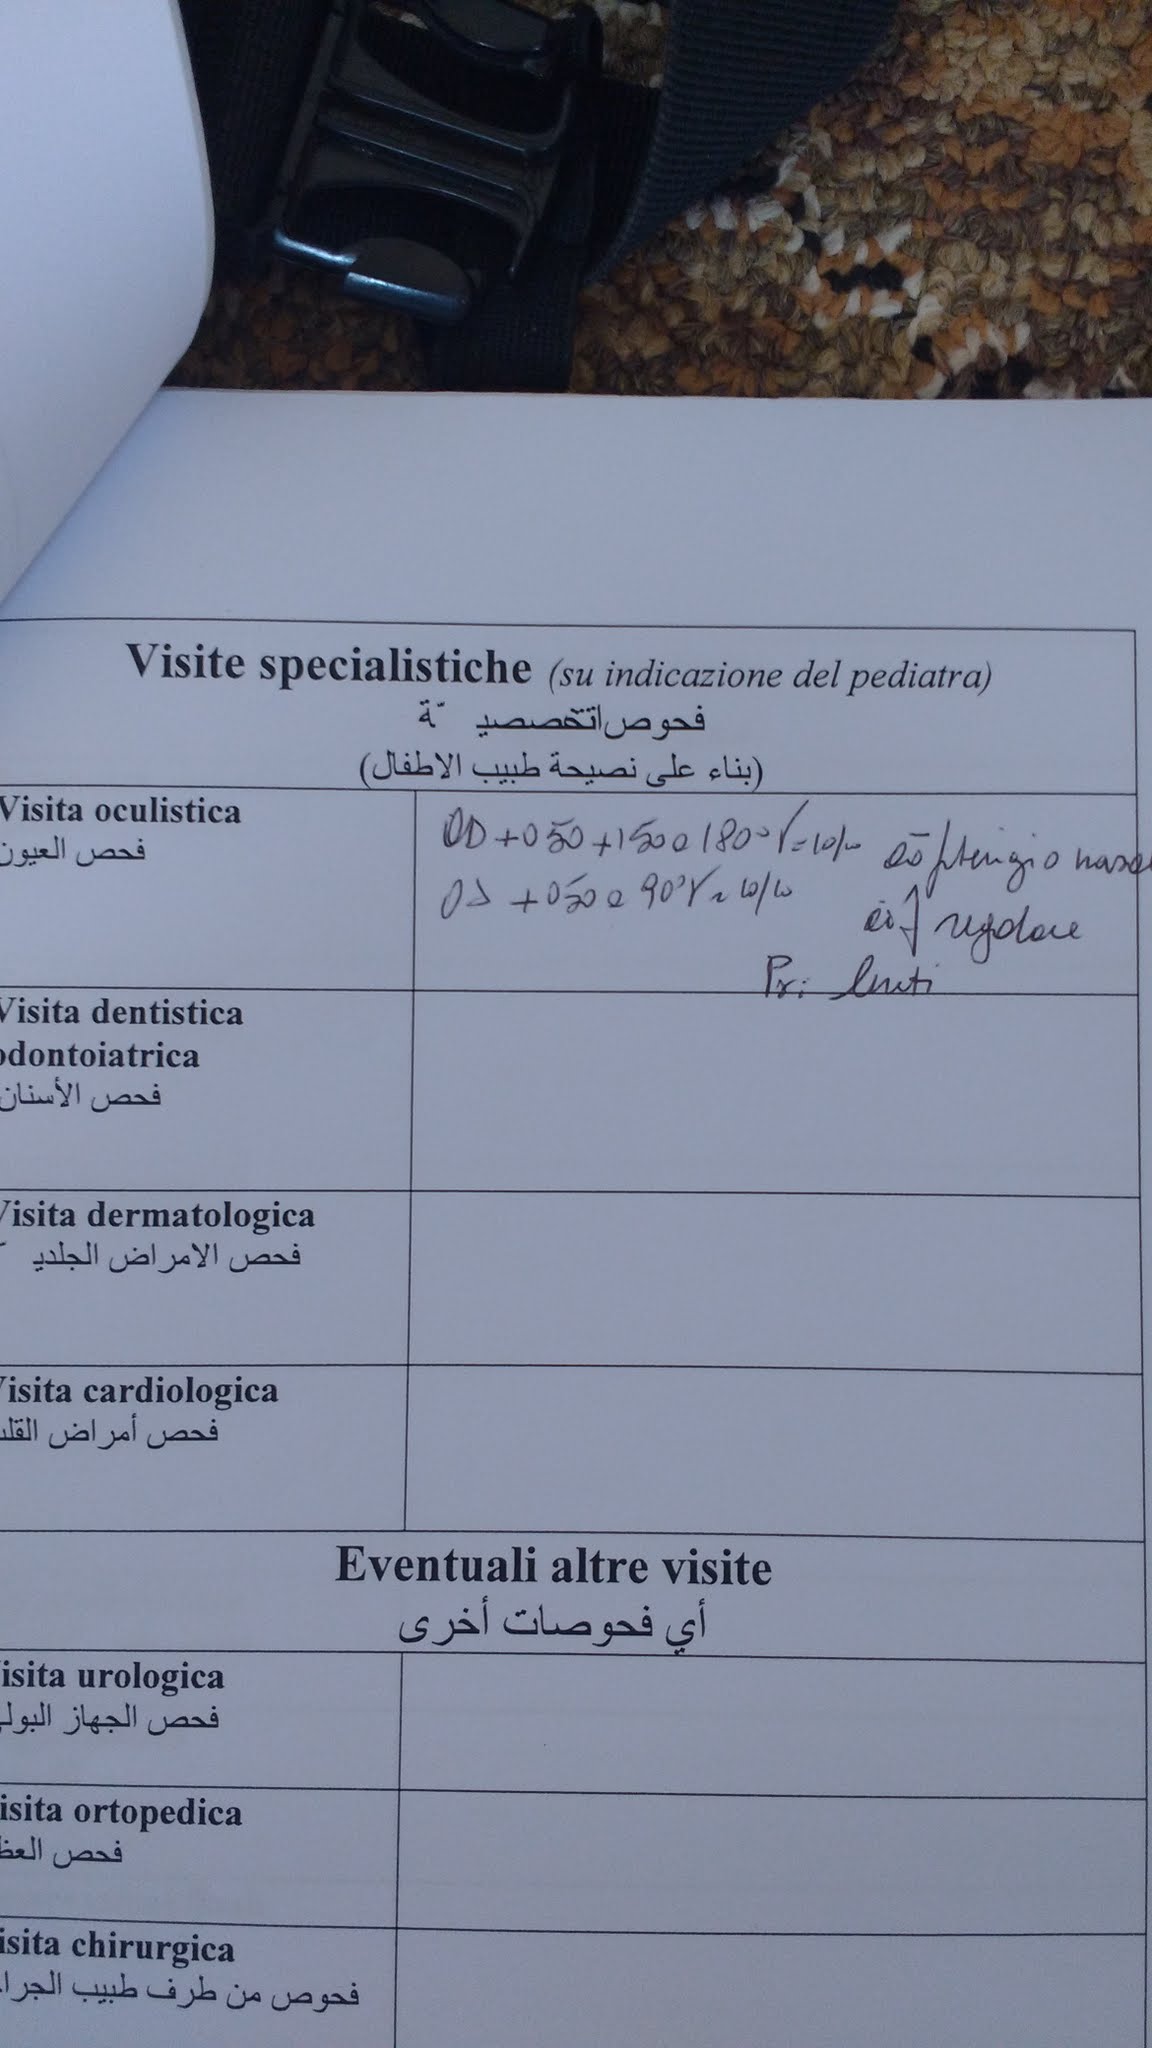 Visite specialistiche (su indicazione del pediatra)
فحوص اتخصصيـ ـّة
(بناء على نصيحة طبيب الاطفال)
Visita oculistica
فحص العيون
OD +050 +150 a 180° V= 10/10 nasale
OS +050 a 90° V = 10/10
regolare
Px: lenti
Visita dentistica
odontoiatrica
فحص الأسنان
Visita dermatologica
فحص الامراض الجلديـ
Visita cardiologica
فحص أمراض القلب
Eventuali altre visite
أي فحوصات أخرى
isita urologica
فحص الجهاز البولي
isita ortopedica
فحص العظ
isita chirurgica
فحوص من طرف طبيب الجرا